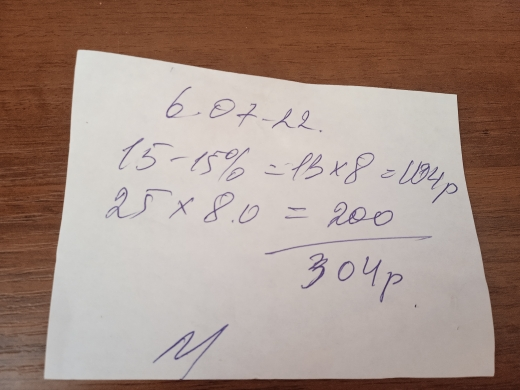 6.07-22.
15-15% = 13 × 8 = 104р
25 × 8.0 = 200
304р